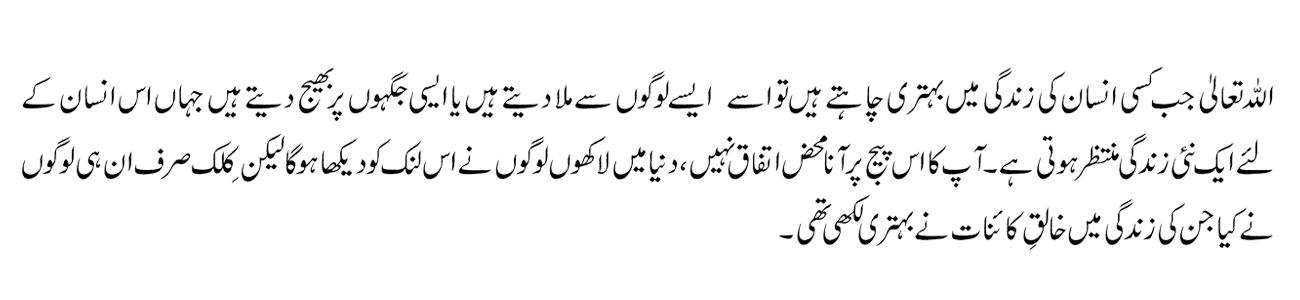 اللہ تعالیٰ جب کسی انسان کی زندگی میں بہتری چاہتے ہیں تو اسے ایسے لوگوں سے ملا دیتے ہیں یا ایسی جگہوں پر بھیج دیتے ہیں جہاں اس انسان کے
لئے ایک نئی زندگی منتظر ہوتی ہے۔ آپ کا اس پیج پر آنا محض اتفاق نہیں، دنیا میں لاکھوں لوگوں نے اس لنک کو دیکھا ہوگا لیکن کِلک صرف ان ہی لوگوں
نے کیا جن کی زندگی میں خالقِ کائنات نے بہتری لکھی تھی ۔